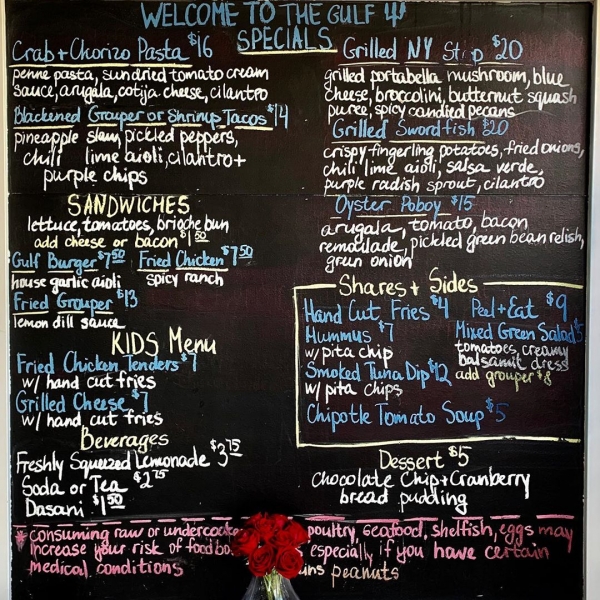 WELCOME TO THE GULF
SPECIALS
Crab + Chorizo Pasta $16
penne pasta, sundried tomato cream
sauce, arugala, cotija cheese, cilantro
Blackened Grouper or Shrimp Tacos $14
pineapple slaw, pickled peppers,
chili lime aioli, cilantro +
purple chips
Grilled NY Strip $20
grilled portabella mushroom, blue
cheese, broccolini, butternut squash
puree, spicy candied pecans
Grilled Swordfish $20
crispy fingerling potatoes, fried onions,
chili lime aioli, salsa verde,
purple radish sprout, cilantro
Oyster Poboy $15
arugala, tomato, bacon
remoulade, pickled green bean relish,
green onion
SANDWICHES
lettuce, tomatoes, brioche bun
add cheese or bacon $1.50
Gulf Burger $7.50
house garlic aioli
Fried Chicken $7.50
spicy ranch
Fried Grouper $13
lemon dill sauce
KIDS Menu
Fried Chicken Tenders $7
w/ hand cut fries
Grilled Cheese $7
w/ hand cut fries
Beverages
Freshly Squeezed Lemonade $3.75
Soda or Tea $2.75
Dasani $1.50
Shares + Sides
Hand Cut Fries $4
Hummus $7
w/ pita chip
Smoked Tuna Dip $12
w/ pita chips
Chipotle Tomato Soup $5
Peel + Eat $9
Mixed Green Salad $5
tomatoes, creamy
balsamic dress
add grouper $8
Dessert $5
Chocolate Chip + Cranberry
bread pudding
* consuming raw or undercooke poultry, seafood, shelfish, eggs may
increase your risk of foodbo especially if you have certain
medical conditions
ins peanuts